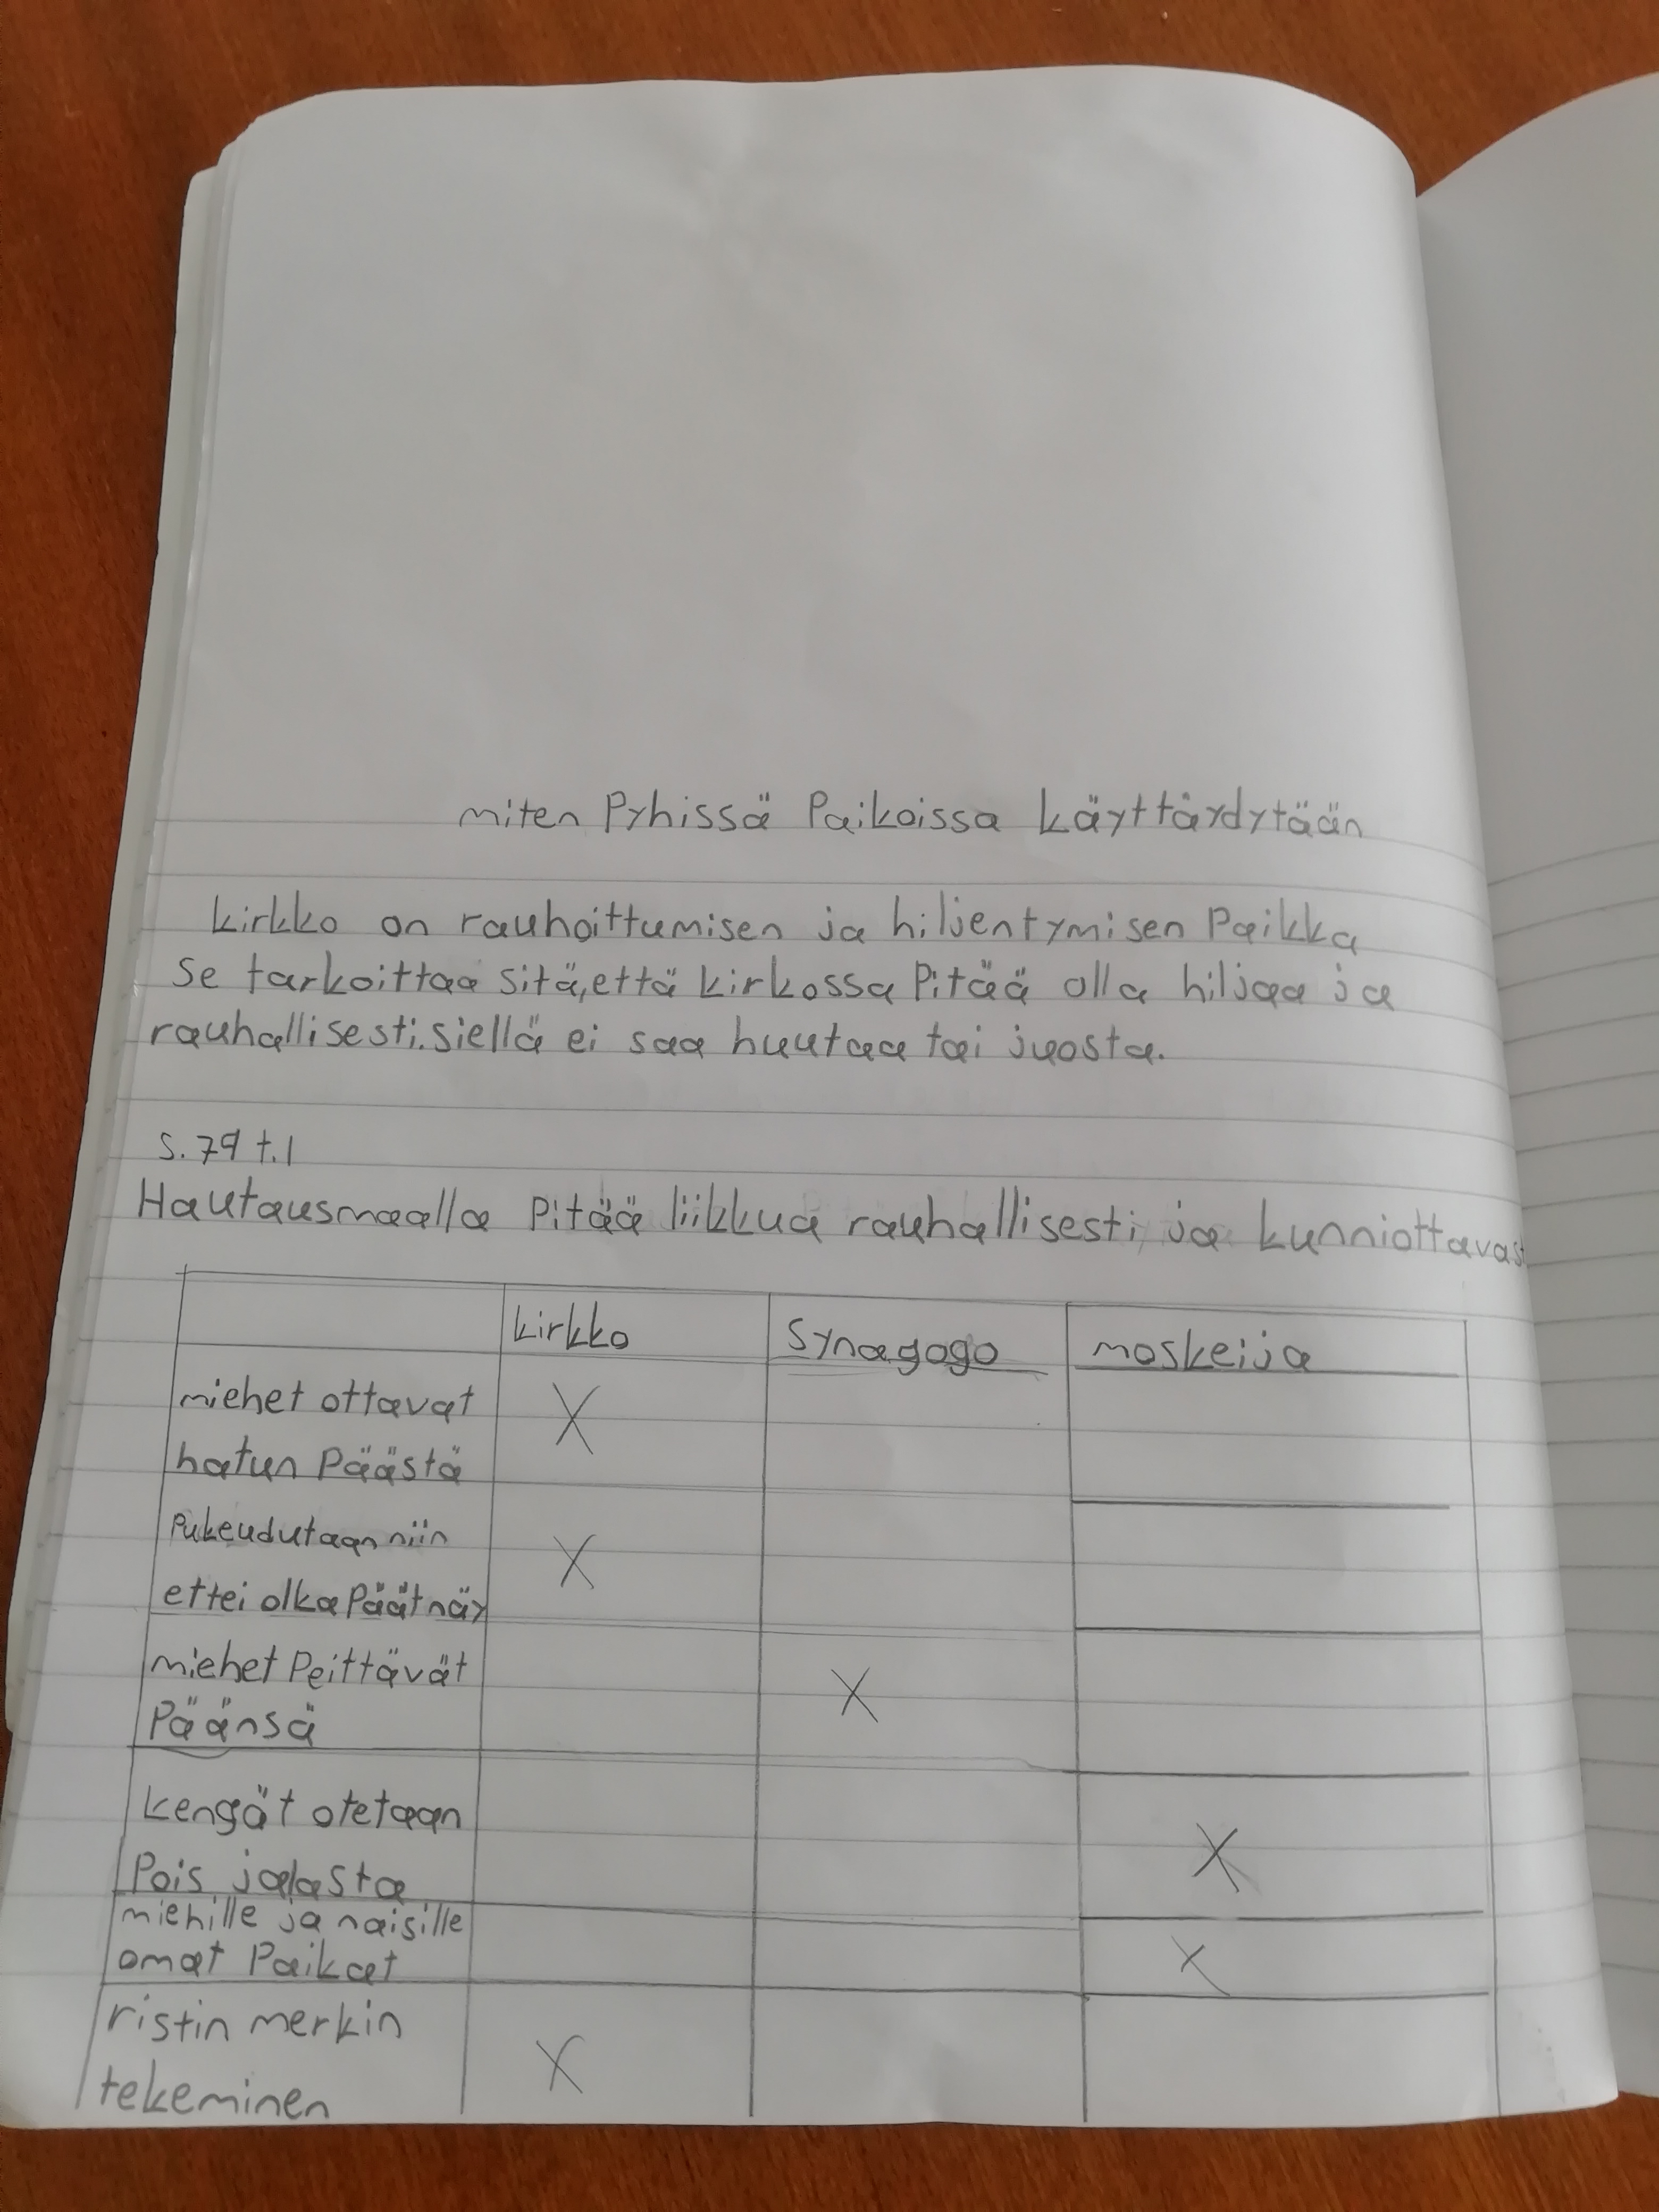 miten Pyhissä Paikoissa käyttäydytään
kirkko on rauhoittumisen ja hiljentymisen Paikka
se tarkoittaa sitä,että kirkossa Pitää olla hiljaa ja
rauhallisesti.siellä ei saa huutaa tai juosta.
s. 79 t.1
Hautausmaalla Pitää liikkua rauhallisesti ja kunniottavast
kirkko synagogo moskeija
miehet ottavat
hatun Päästä X
Pukeudutaan niin
ettei olkaPäätnäy X
miehet Peittävät
Päänsä X
kengät otetaan
Pois jalasta X
miehille ja naisille
omat Paikat X
ristin merkin
tekeminen X